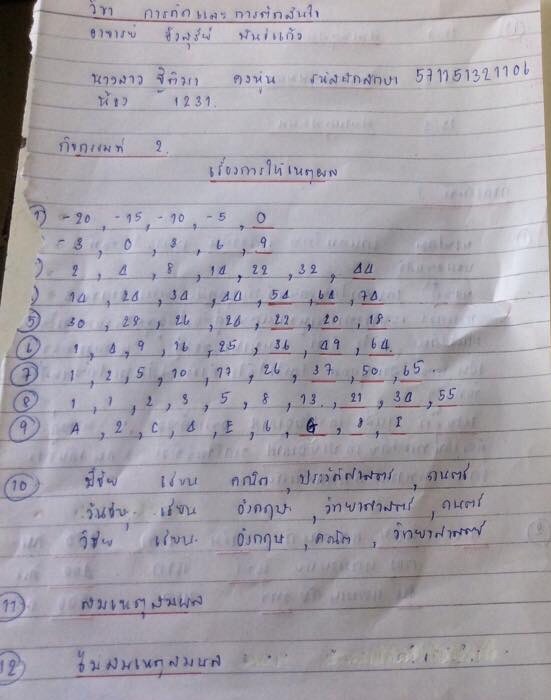 วิชา การคิดและการตัดสินใจ
อาจารย์
นางสาว ฐิติมา คงหุ่น รหัสนักศึกษา 571151321106
ห้อง 1231.
กิจกรรมที่ 2.
เรื่องการให้เหตุผล
1) -20, -15, -10, -5, 0
-3, 0, 3, 6, 9
2, 4, 8, 14, 22, 32, 44
14, 24, 34, 44, 54, 64, 74
5 30, 28, 26, 24, 22, 20, 18.
6 1, 4, 9, 16, 25, 36, 49, 64.
7 1, 2, 5, 10, 17, 26, 37, 50, 65.
8 1, 1, 2, 3, 5, 8, 13, 21, 34, 55
9 A, 2, C, 4, E, 6, G, 8, I
10 มีชัย เรียน คณิต, ประวัติศาสตร์, ดนตรี
วันชัย เรียน อังกฤษ, วิทยาศาสตร์, ดนตรี
วิชัย เรียน อังกฤษ, คณิต, วิทยาศาสตร์
11 สมเหตุสมผล
12 ไม่สมเหตุสมผล